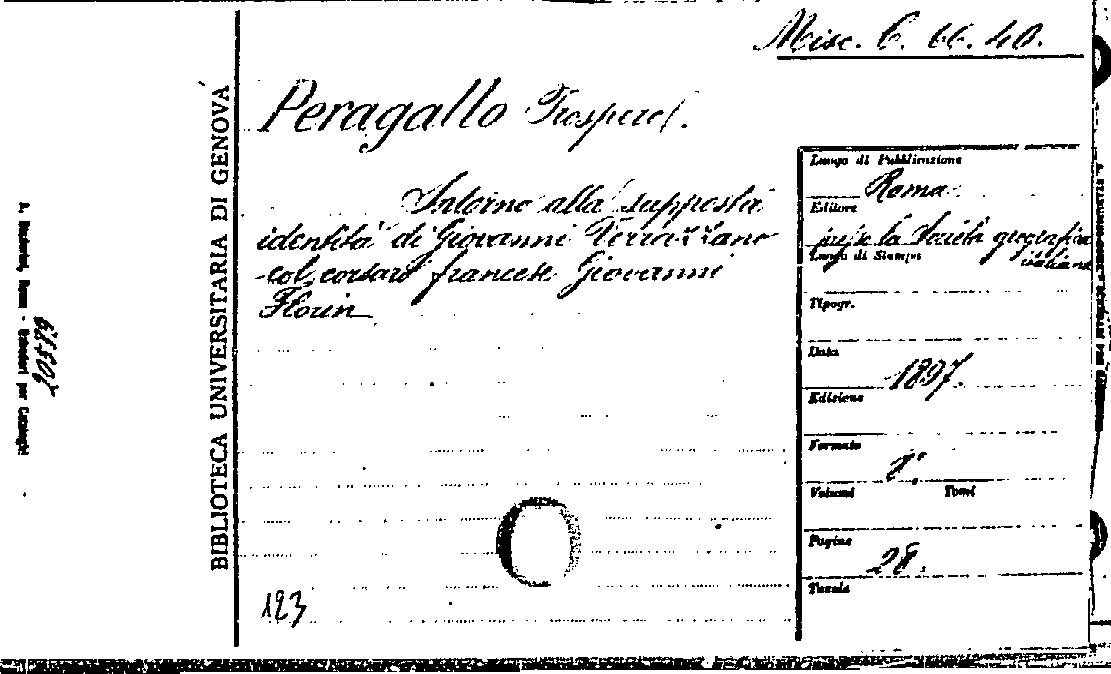 Misc. C. 66. 40.
Peragallo Prospero.
Intorno alla supposta
identità di Giovanni Verrazzano
col corsaro francese Giovanni
Florin
123
BIBLIOTECA UNIVERSITARIA DI GENOVA
Luogo di Pubblicazione
Roma
Editore
presso la Società geografica
italiana
Luogo di Stampa
Tipogr.
Data
1897.
Edizione
Formato
8°.
Volumi Tomi
Pagine
28.
Tavole